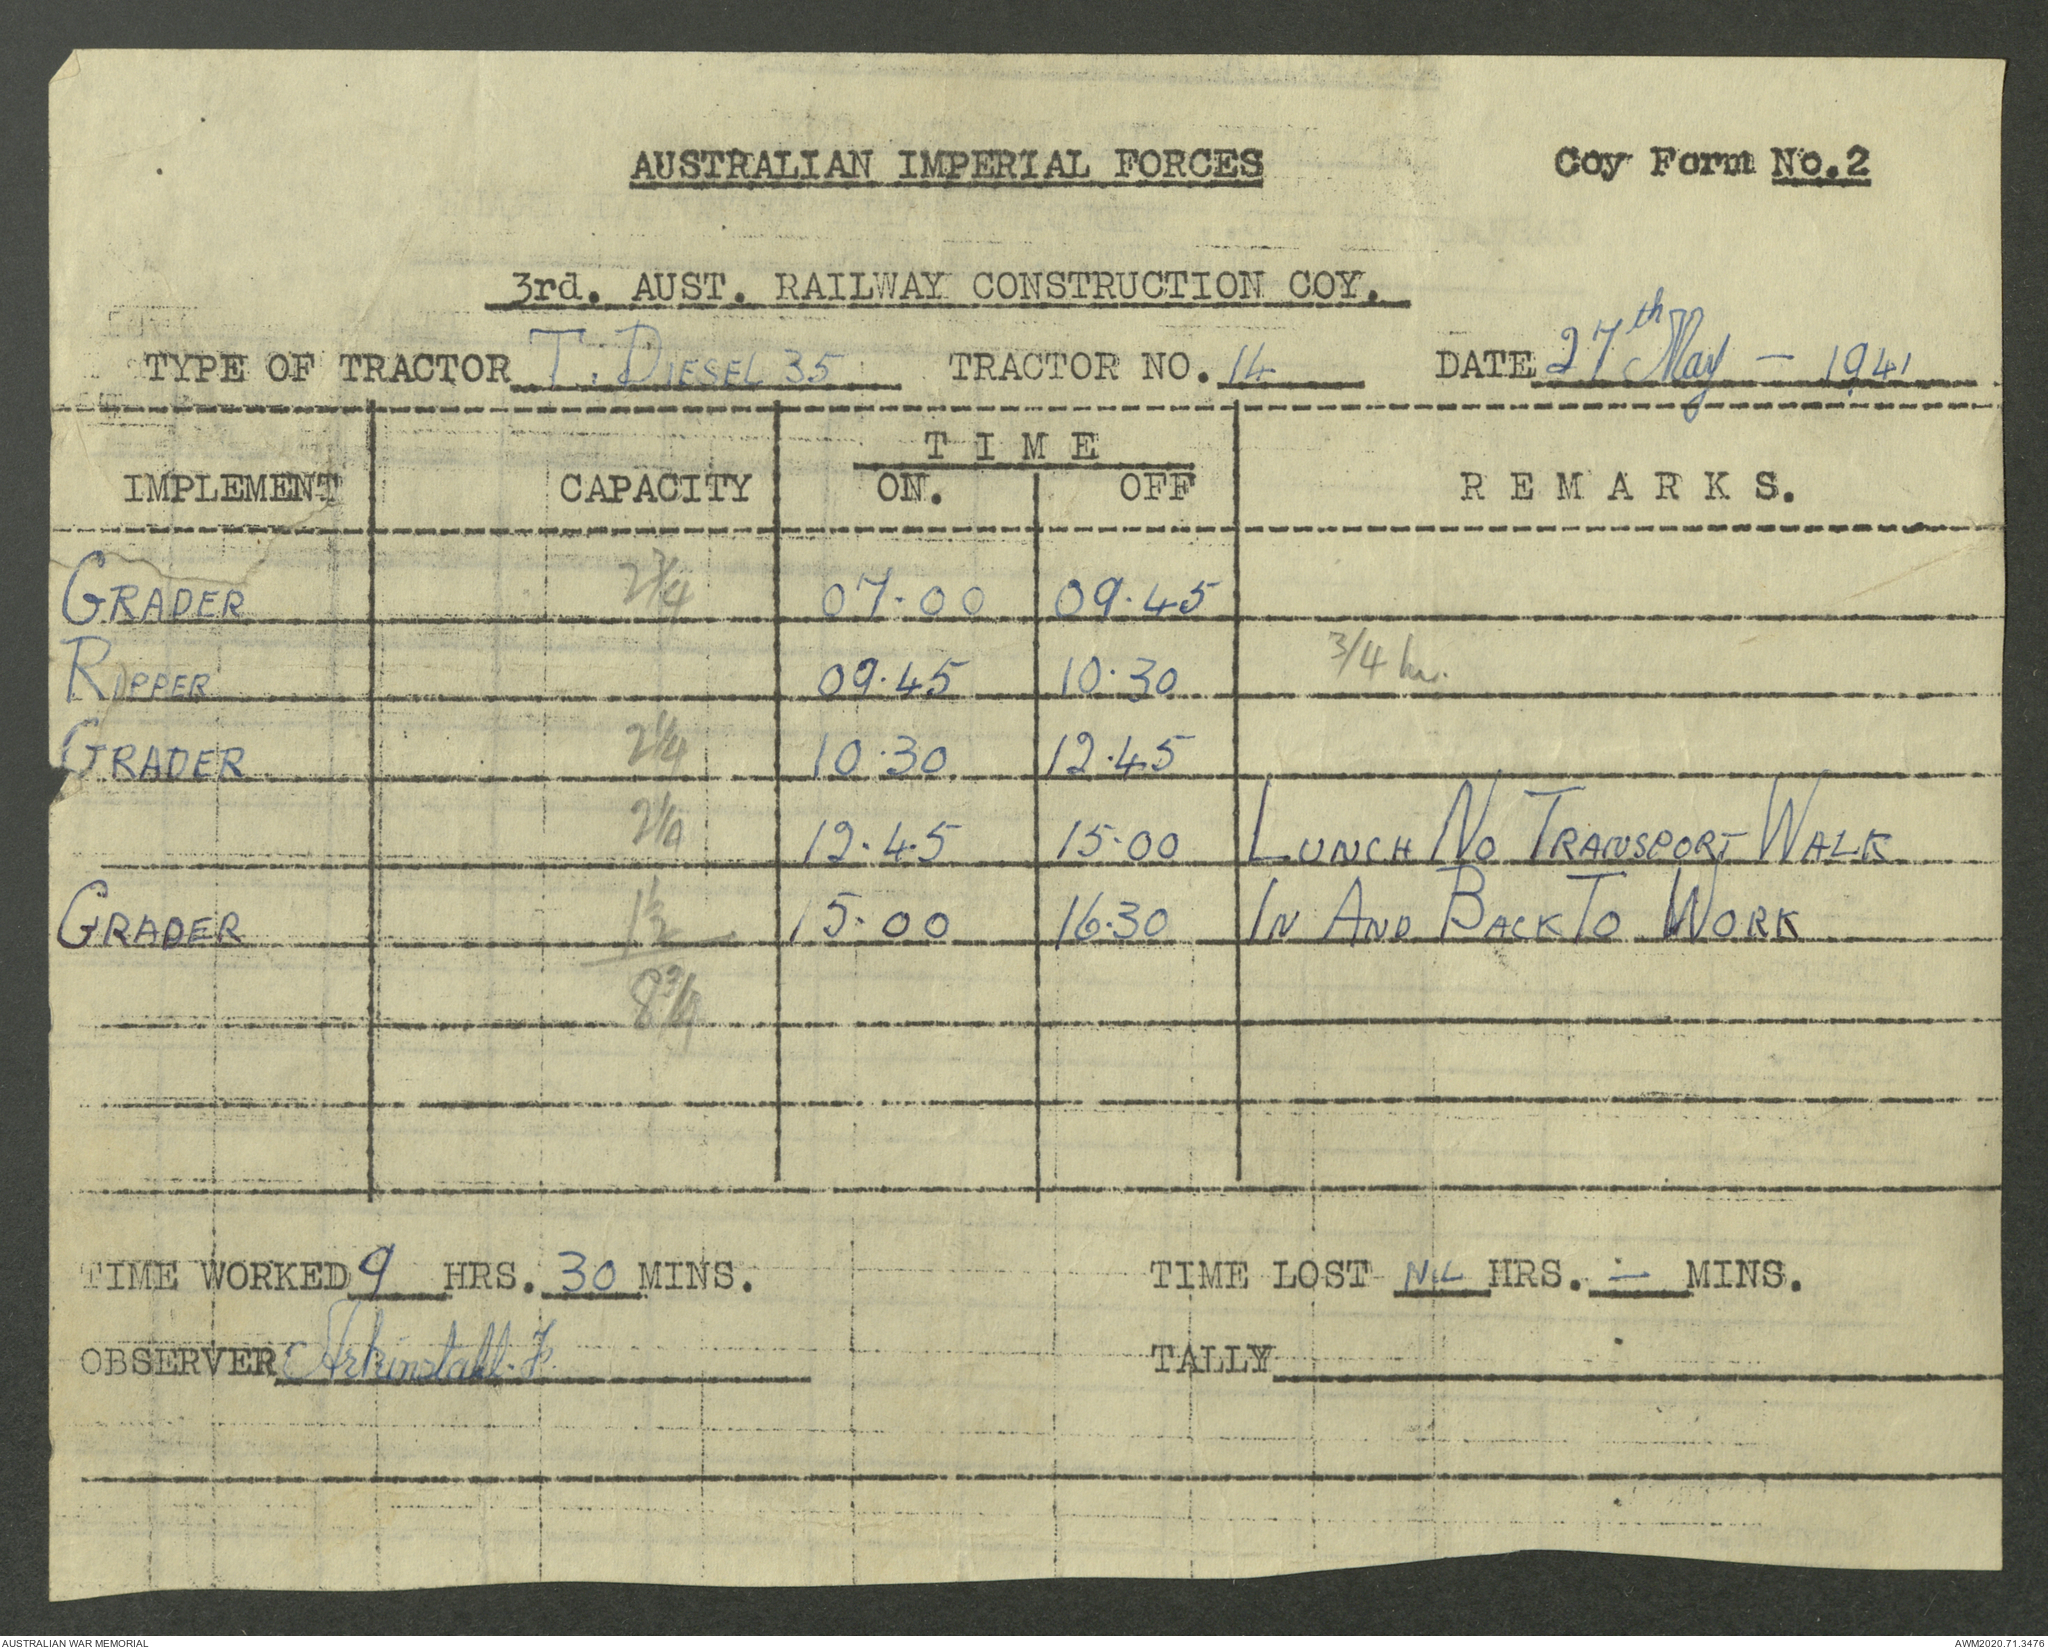 AUSTRALIAN IMPERIAL FORCES Coy Form No.2
3rd. AUST. RAILWAY CONSTRUCTION COY.
TYPE OF TRACTOR T. DIESEL 35 TRACTOR NO. 14 DATE 27th May - 1941
TIME
IMPLEMENT CAPACITY ON. OFF REMARKS.
GRADER 2 3/4 07.00 09.45
RIPPER 09.45 10.30 3/4 hr.
GRADER 2 1/4 10.30 12.45
2 1/4 12.45 15.00 LUNCH NO TRANSPORT WALK
GRADER 1 1/2 15.00 16.30 IN AND BACK TO WORK
8 3/4
TIME WORKED 9 HRS. 30 MINS. TIME LOST NIL HRS. — MINS.
OBSERVER Arkinstall. F. TALLY
AUSTRALIAN WAR MEMORIAL AWM2020.71.3476